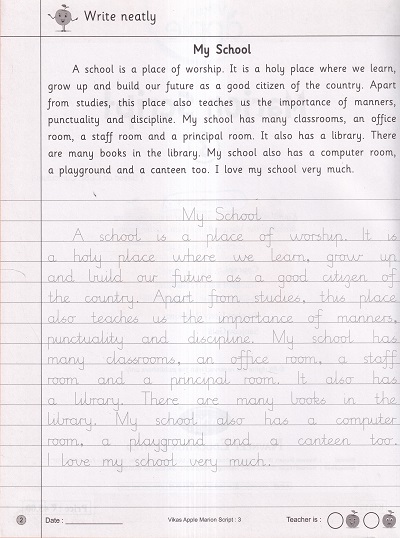 Write neatly
My School
A school is a place of worship. It is a holy place where we learn,
grow up and build our future as a good citizen of the country. Apart
from studies, this place also teaches us the importance of manners,
punctuality and discipline. My school has many classrooms, an office
room, a staff room and a principal room. It also has a library. There
are many books in the library. My school also has a computer room,
a playground and a canteen too. I love my school very much.
My School
A school is a place of worship. It is
a holy place where we learn, grow up
and build our future as a good citizen of
the country. Apart from studies, this place
also teaches us the importance of manners,
punctuality and discipline. My school has
many classrooms, an office room, a staff
room and a principal room. It also has
a library. There are many books in the
library. My school also has a computer
room, a playground and a canteen too.
I love my school very much.
2 Date : Vikas Apple Marion Script : 3 Teacher is :